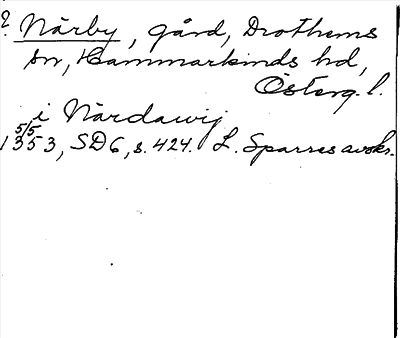 ? Närby, gård, Drothems
sn, Hammarkinds hd,
Österg. l.
i Närdawij
5/5 1353, SD6, s. 424. L. Sparres avskr.